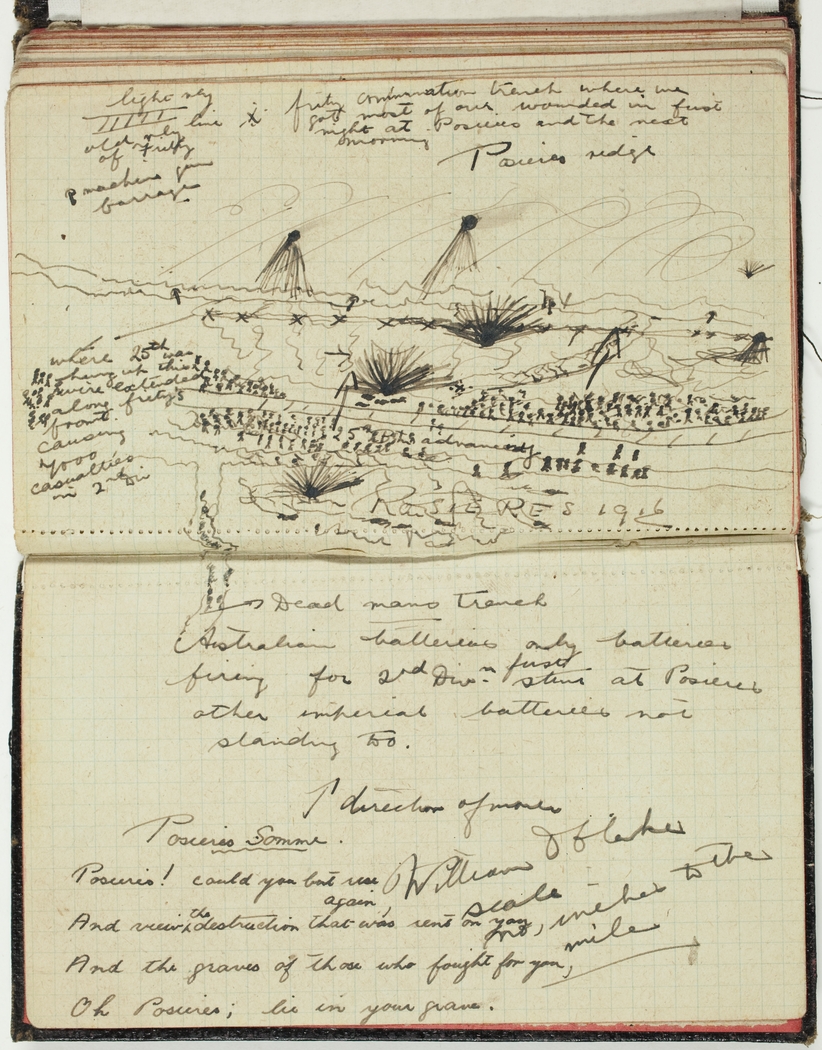 light rly
line
old rly
of Fritz
machine gun
barrage
fritz communication trench where we
got most of our wounded in first
night at Posieres and the next
morning
Posieres ridge
where 25th was
hung up this
wire extended
along fritz's
front.
causing
7000
casualties
in 2nd Div
25th Bn advancing
POSIERES 1916
Dead mans trench
Australian batteries only batteries
firing for 2nd Divn first stunt at Posieres
other imperial batteries not
standing to.
direction of moves
Posieres Somme.
William
scale
inches to the
mile
Posieres! could you but rise
again,
And view the destruction that was sent on you
And the graves of those who fought for you,
Oh Posieres; lie in your grave.